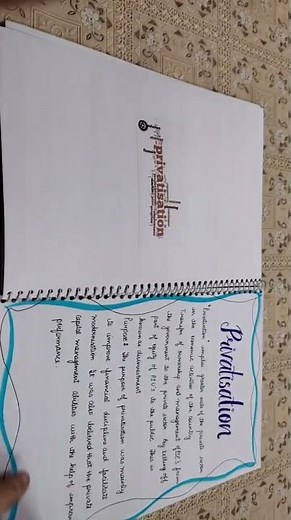 privatisation
Privatisation
"Privatisation" implies greater role of the private sector
in the economic activities of the country
Transfer of ownership and management of PSE from
the government to the private sector by selling off
part of equity of PSEs to the public. This is
known as disinvestment
Purpose: The purpose of privatisation was mainly
to improve financial discipline and facilitate
modernisation. It was also believed that the private
capital management abilities with the help of
performance